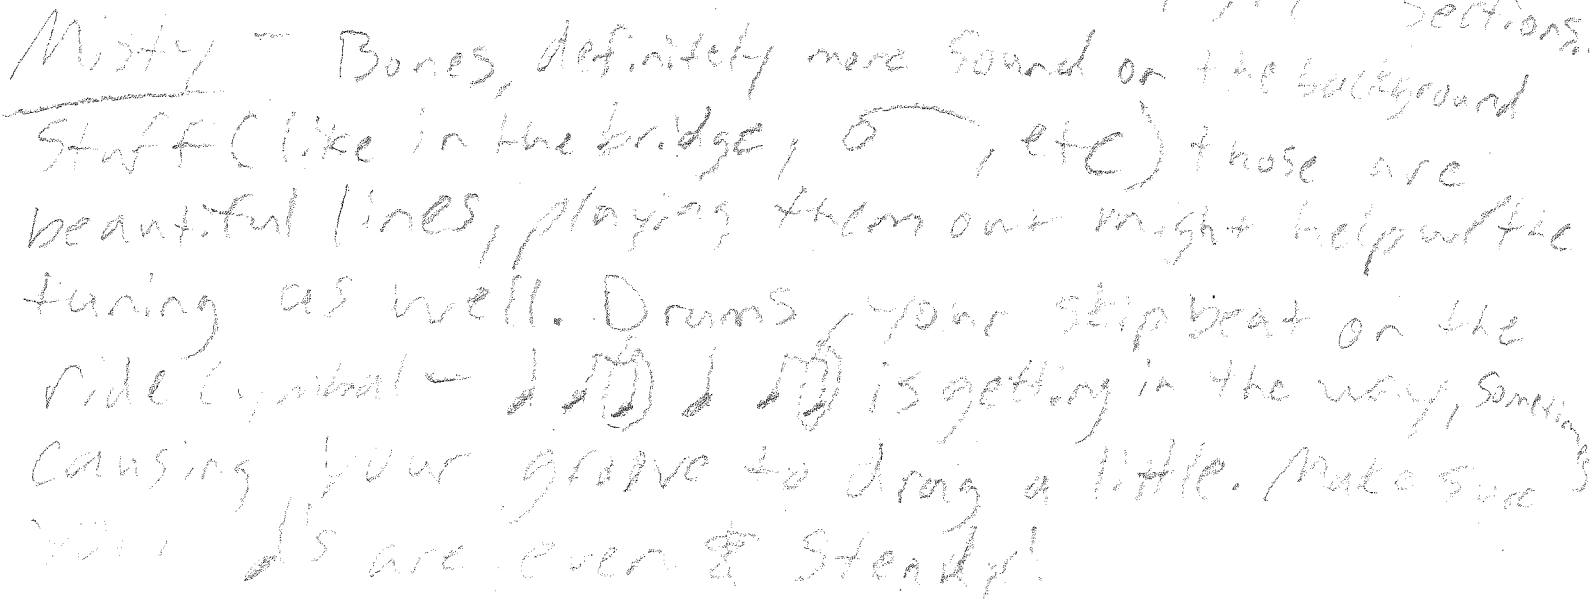 sections.
Misty - Bones, definitely more sound on the background
stuff (like in the bridge, 𝅗𝅥, etc) those are
beautiful lines, playing them out might help w/ the
tuning as well. Drums, your skip beat on the
ride cymbal - ♩ ♫ ♩ ♫ is getting in the way, sometimes
causing your groove to drag a little. Make sure
your ♩'s are even & steady!